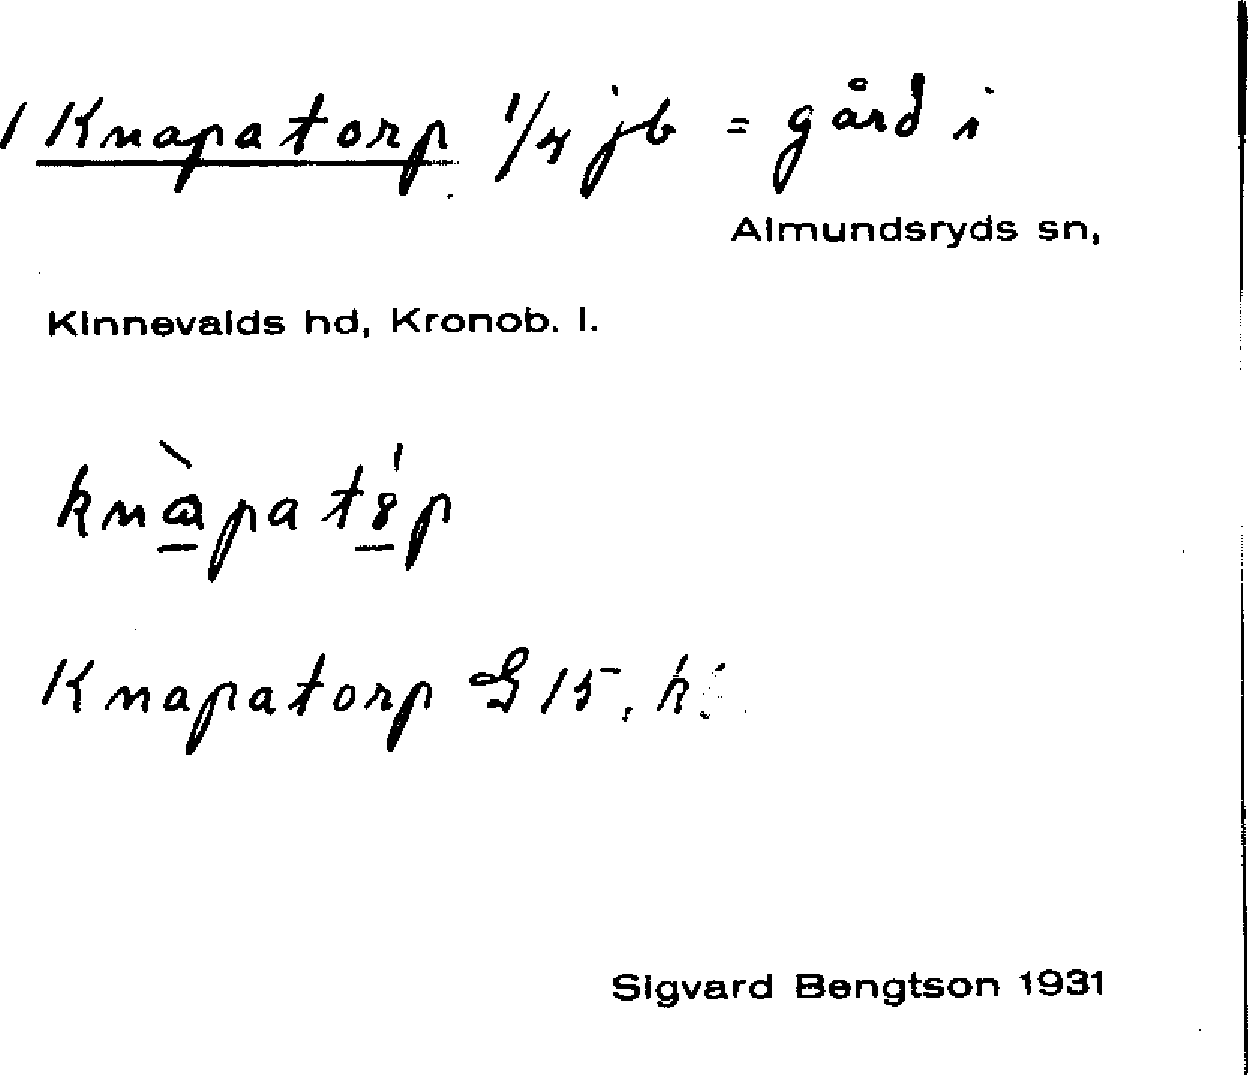 1 Knapatorp 1/4 jb = gård i
Almundsryds sn,
Kinnevalds hd, Kronob. l.
knàpat8́p
Knapatorp G 15.
Sigvard Bengtson 1931